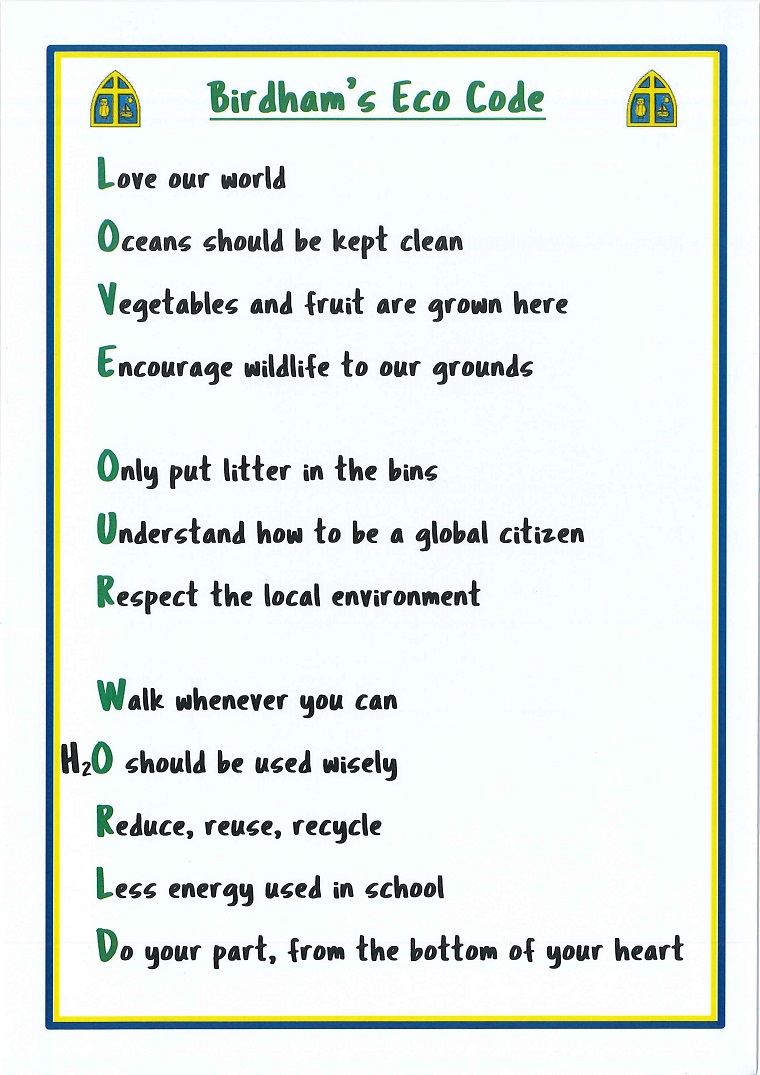 Birdham's Eco Code
Love our world
Oceans should be kept clean
Vegetables and fruit are grown here
Encourage wildlife to our grounds
Only put litter in the bins
Understand how to be a global citizen
Respect the local environment
Walk whenever you can
H₂O should be used wisely
Reduce, reuse, recycle
Less energy used in school
Do your part, from the bottom of your heart